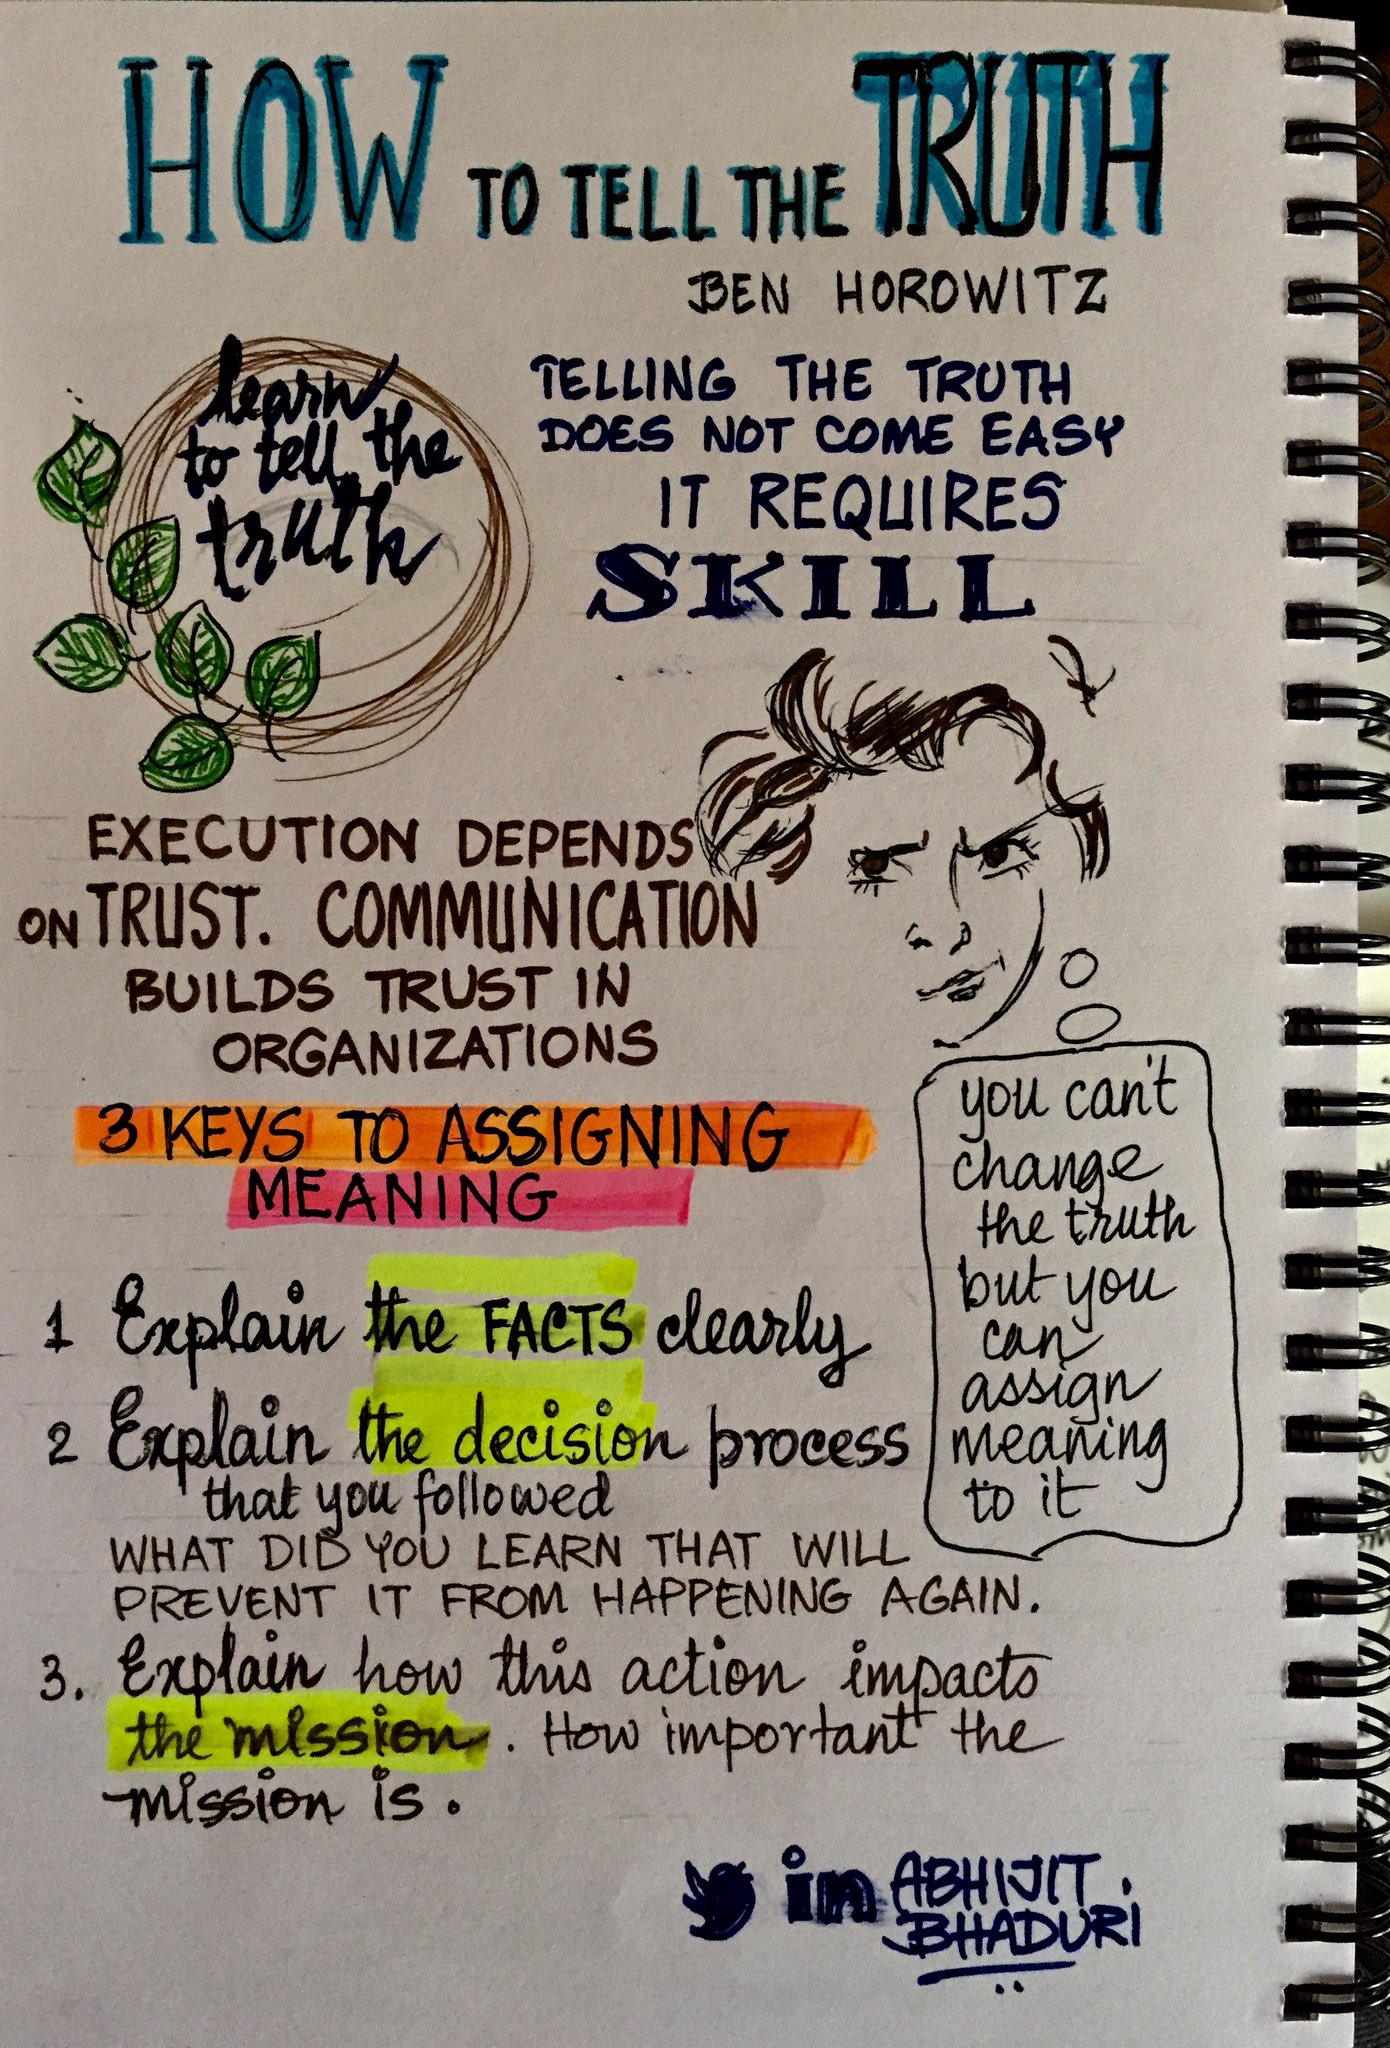 HOW TO TELL THE TRUTH
BEN HOROWITZ
learn
to tell the
truth
TELLING THE TRUTH
DOES NOT COME EASY
IT REQUIRES
SKILL
EXECUTION DEPENDS
ON TRUST. COMMUNICATION
BUILDS TRUST IN
ORGANIZATIONS
3 KEYS TO ASSIGNING
MEANING
you can't
change
the truth
but you
can
assign
meaning
to it
1 Explain the FACTS clearly
2 Explain the decision process
that you followed
WHAT DID YOU LEARN THAT WILL
PREVENT IT FROM HAPPENING AGAIN.
3. Explain how this action impacts
the mission. How important the
mission is.
in ABHIJIT.
BHADURI